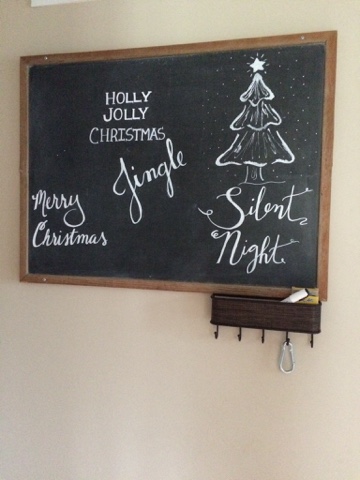 HOLLY
JOLLY
CHRISTMAS
Jingle
Merry
Christmas
Silent
Night